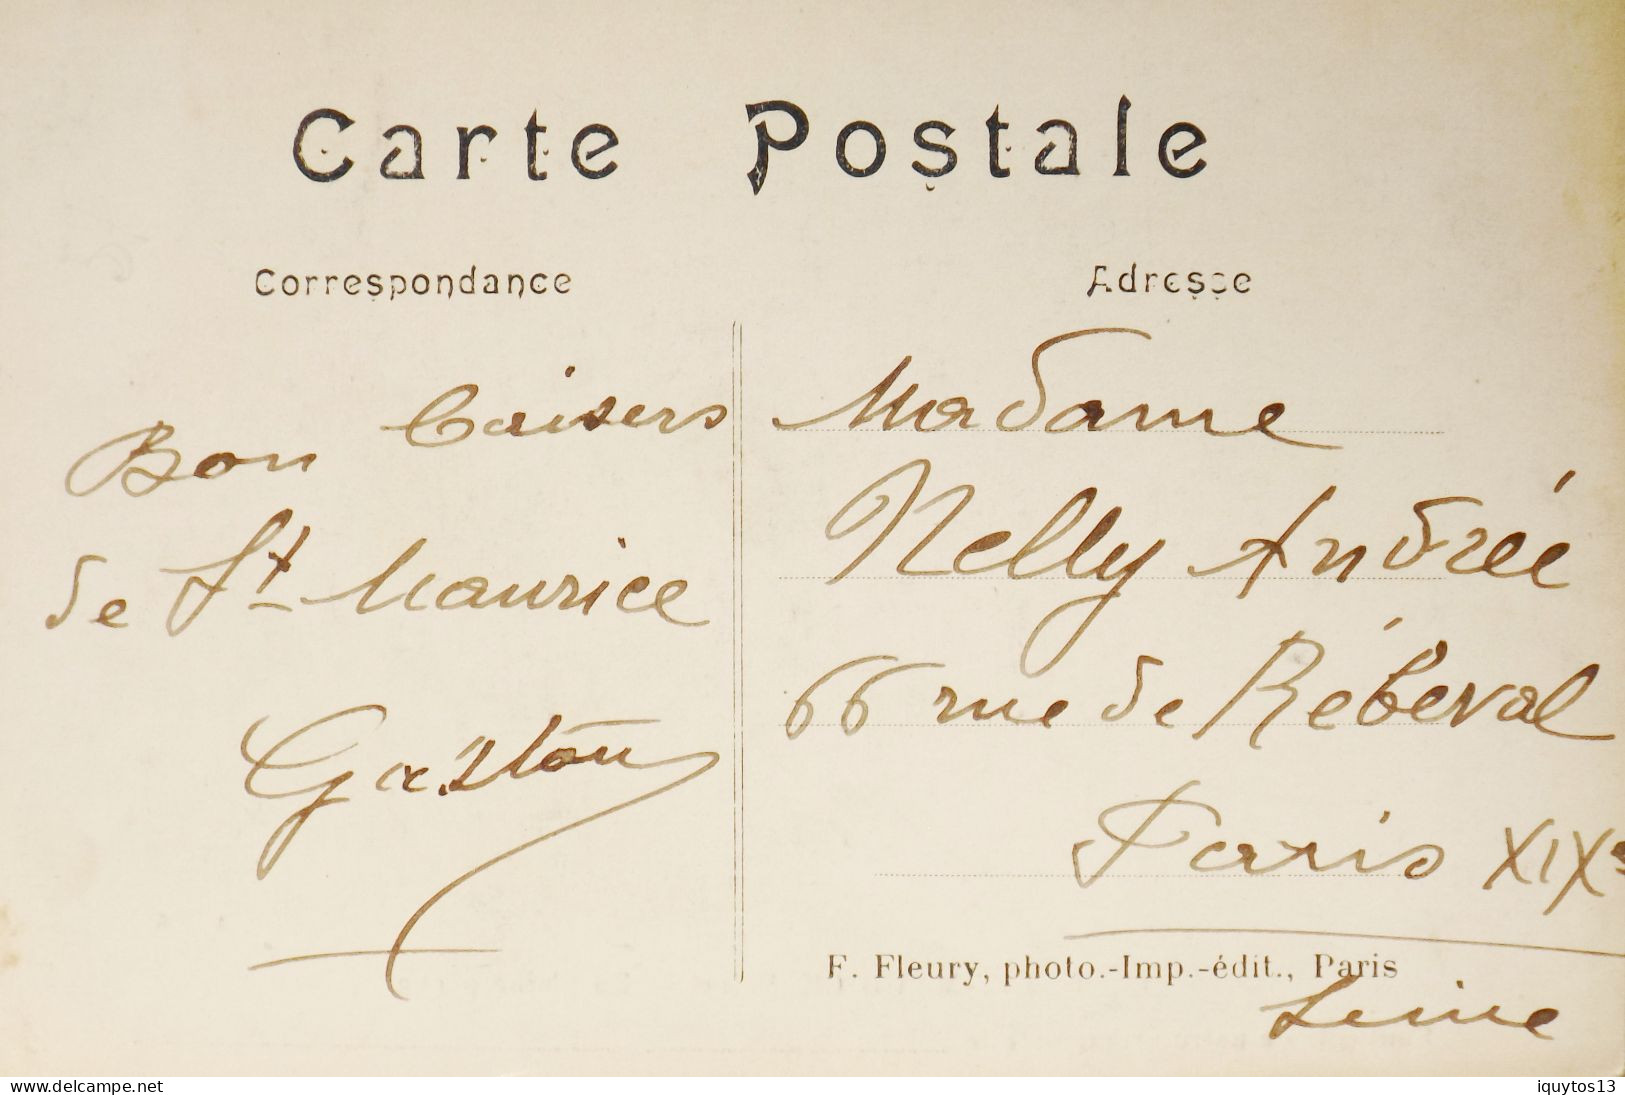 Carte Postale
Correspondance
Adresse
Bon baisers
de St Maurice
Gaston
Madame
Nelly Andrée
66 rue de Rébeval
Paris XIXe
F. Fleury, photo.-Imp.-édit., Paris
Seine
www.delcampe.net
iquytos13